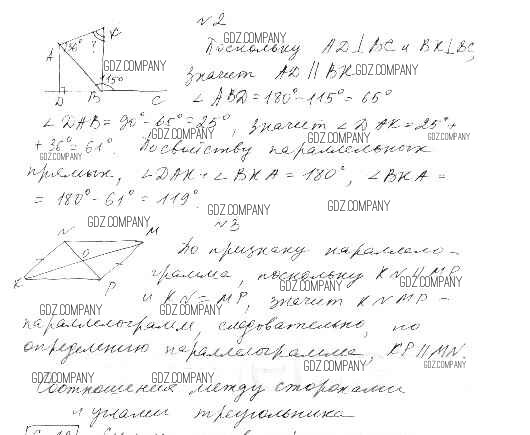 №2
Поскольку AD⊥BC и BK⊥BC,
значит AD || BK.
∠ABD = 180° - 115° = 65°
∠DAB = 90° - 65° = 25°, значит ∠DAK = 25° +
+ 36° = 61°. По свойству параллельных
прямых, ∠DAK + ∠BKA = 180°, ∠BKA =
= 180° - 61° = 119°.
№3
По признаку параллело-
грамма, поскольку KN || MP
и KN = MP, значит KNMP -
параллелограмм, следовательно, по
определению параллелограмма, KP || MN.
Соотношения между сторонами
и углами треугольника
A
K
36°
?
115°
D
B
C
N
M
O
K
P
GDZ.COMPANY
GDZ.COMPANY
GDZ.COMPANY
GDZ.COMPANY
GDZ.COMPANY
GDZ.COMPANY
GDZ.COMPANY
GDZ.COMPANY
GDZ.COMPANY
GDZ.COMPANY
GDZ.COMPANY
GDZ.COMPANY
GDZ.COMPANY
GDZ.COMPANY
GDZ.COMPANY
GDZ.COMPANY
GDZ.COMPANY
GDZ.COMPANY
GDZ.COMPANY